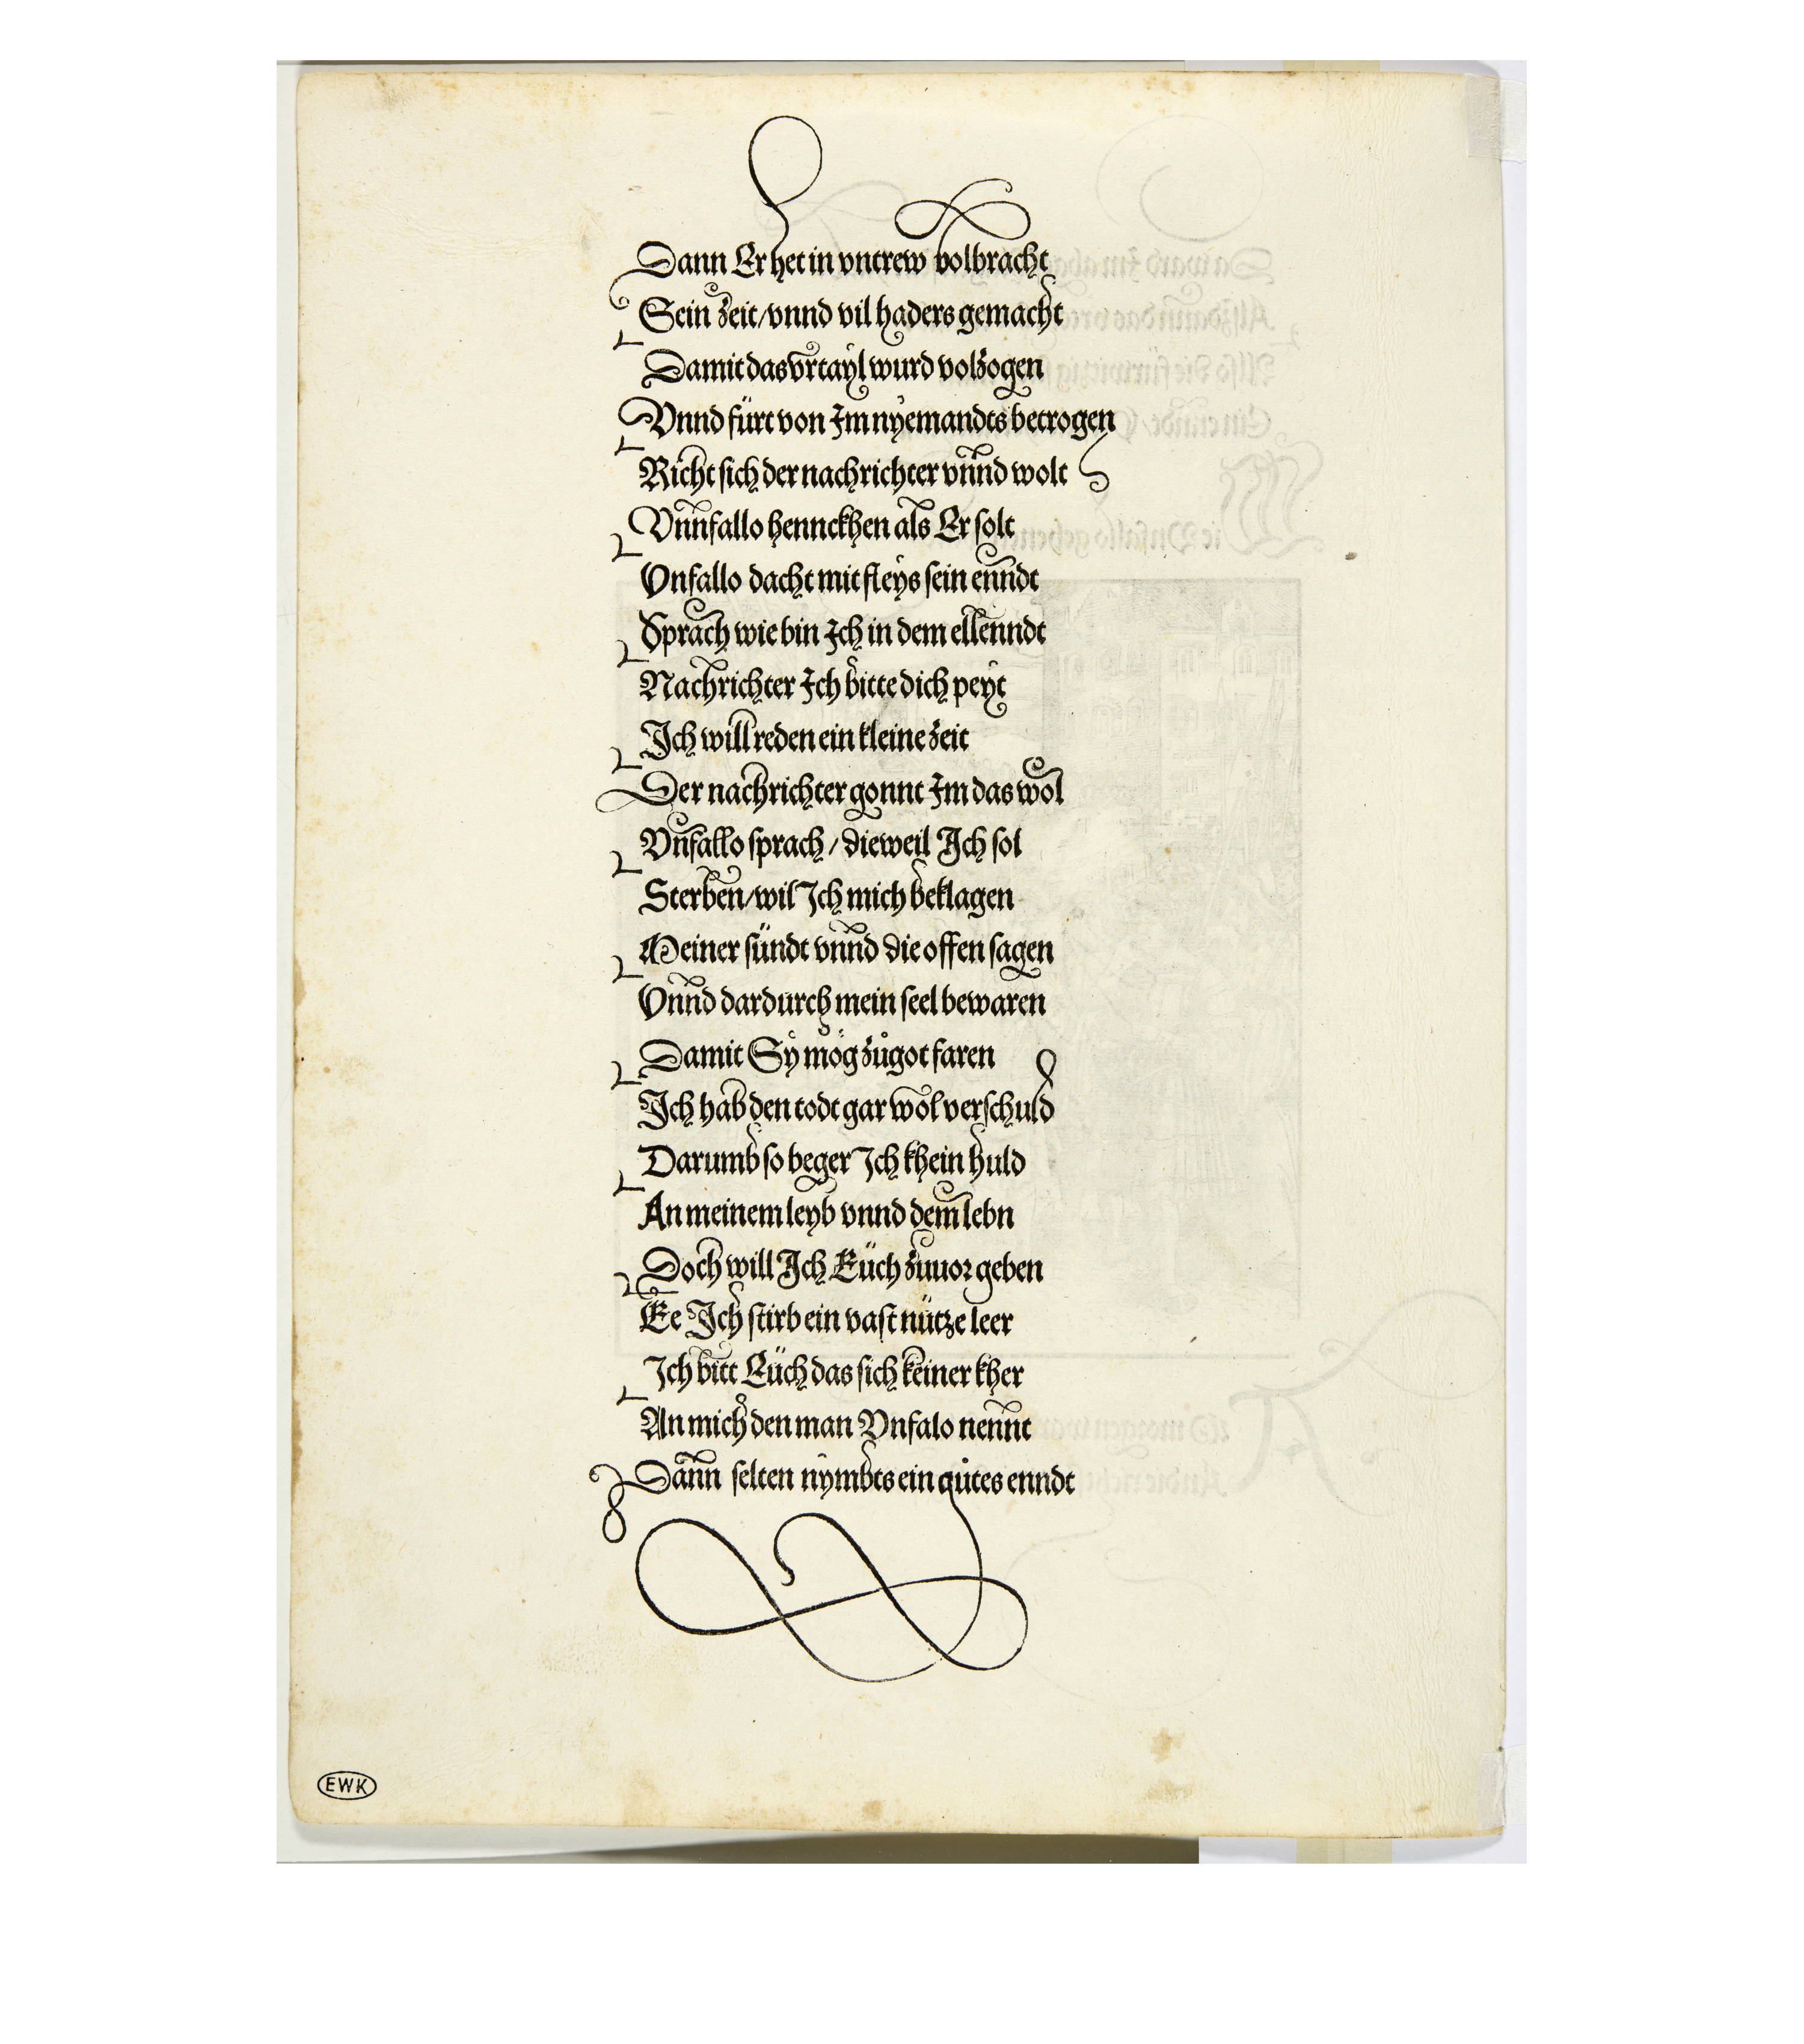 Dann Er het in vntrew volbracht
Sein zeit/vnnd vil haders gemacht
Damit das vrtayl wurd volzogen
Vnnd fürt von Im nyemandts betrogen
Richt sich der nachrichter vnnd wolt
Vnnfallo hennckhen als Er solt
Vnfallo dacht mit fleys sein enndt
Sprach wie bin Ich in dem ellenndt
Nachrichter Ich bitte dich peyt
Ich will reden ein kleine zeit
Der nachrichter gonnt Im das wol
Vnfallo sprach/dieweil Ich sol
Sterben/wil Ich mich beklagen
Meiner sündt vnnd die offen sagen
Vnnd dardurch mein seel bewaren
Damit Sy mög zůgot faren
Ich hab den todt gar wol verschuld
Darumb so beger Ich khein huld
An meinem leyb vnnd dem lebn
Doch will Ich Eüch zuuor geben
Ee Ich stirb ein vast nütze leer
Ich bitt Eüch das sich keiner kher
An mich den man Vnfalo nennt
Dann selten nymbts ein gůtes enndt
EWK